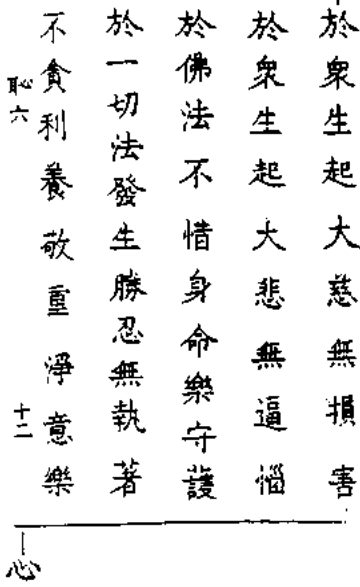 於衆生起大慈無損害
於衆生起大悲無逼惱
於佛法不惜身命樂守護
於一切法發生勝忍無執著
不貪利養敬重淨意樂
恥六
十二
心